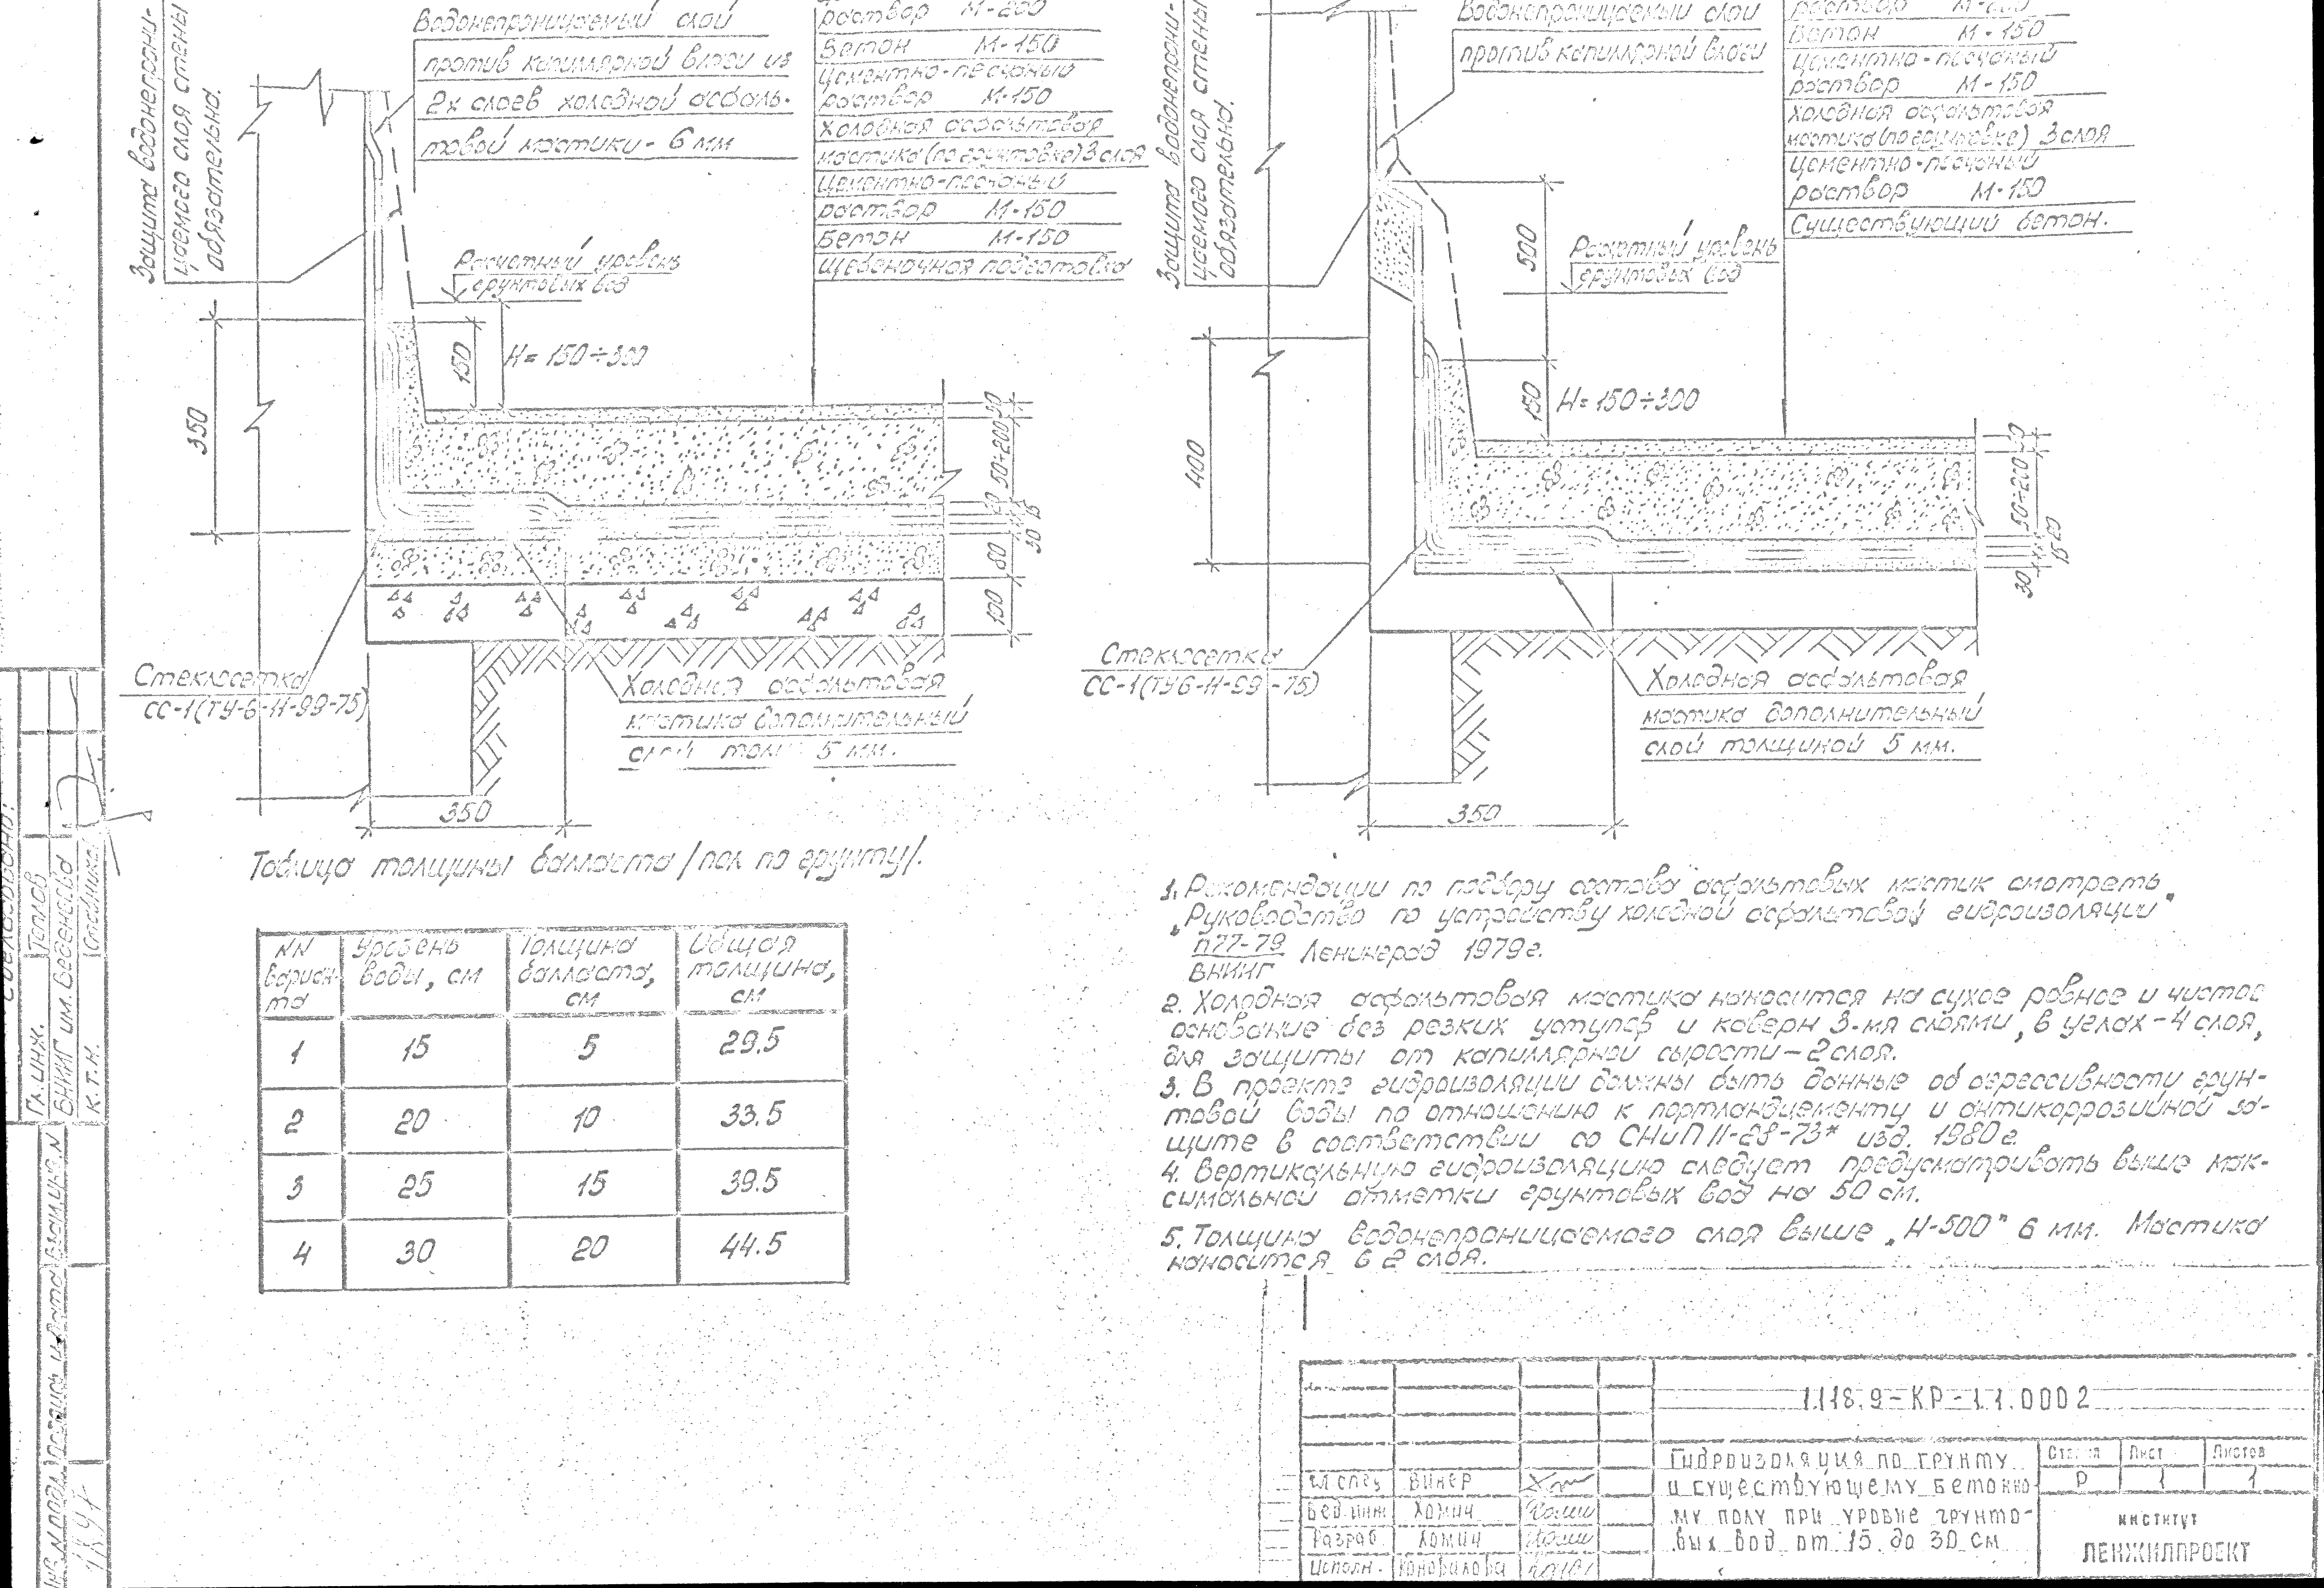 Водонепроницаемый слой
против капиллярной влаги из
2х слоев холодной асфаль-
товой мастики - 6 мм
раствор М-200
Бетон М-150
Цементно-песчаный
раствор М-150
Холодная асфальтовая
мастика (по грунтовке) 3 слоя
Цементно-песчаный
раствор М-150
Бетон М-150
Щебеночная подготовка
Защита водонепрони-
цаемого слоя стены
обязательна.
Расчетный уровень
грунтовых вод
150
H= 150÷300
350
50÷200
80
100
Стеклосетка
СС-1(ТУ-6-11-99-75)
Холодная асфальтовая
мастика дополнительный
слой 5 мм.
350
Водонепроницаемый слой
против капиллярной влаги
раствор М-200
Бетон М-150
Цементно-песчаный
раствор М-150
Холодная асфальтовая
мастика (по грунтовке) 3 слоя
Цементно-песчаный
раствор М-150
Существующий бетон.
Защита водонепрони-
цаемого слоя стены
обязательна.
500
Расчетный уровень
грунтовых вод
150
H= 150÷300
400
50÷200
30
Стеклосетка
СС-1(ТУ6-11-99-75)
Холодная асфальтовая
мастика дополнительный
слой толщиной 5 мм.
350
Таблица толщины балласта /пол по грунту/.
NN вариан-та Уровень воды, см Толщина балласта, см Общая толщина, см
1 15 5 29.5
2 20 10 33.5
3 25 15 39.5
4 30 20 44.5
1. Рекомендации по подбору состава асфальтовых мастик смотреть
„Руководство по устройству холодной асфальтовой гидроизоляции"
п77-79
ВНИИГ Ленинград 1979г.
2. Холодная асфальтовая мастика наносится на сухое ровное и чистое
основание без резких уступов и каверн 3-мя слоями, в углах - 4 слоя,
для защиты от капиллярной сырости - 2 слоя.
3. В проекте гидроизоляции должны быть данные об агрессивности грун-
товой воды по отношению к портландцементу и антикоррозийной за-
щите в соответствии со СНиП II-28-73* изд. 1980г.
4. Вертикальную гидроизоляцию следует предусматривать выше мак-
симальной отметки грунтовых вод на 50 см.
5. Толщина водонепроницаемого слоя выше „Н-500" 6 мм. Мастика
наносится в 2 слоя.
1.118.9-КР-1.1.0002
Гидроизоляция по грунту
и существующему бетонно
му полу при уровне грунто-
вых вод от 15 до 30 см
Лист Листов
Р 1 1
институт
ЛЕНЖИЛПРОЕКТ
Гл спец Винер
Вед инж Хомич
Разраб Хомич
Исполн.
Гл. инж. Теплов
ВНИИГ им. Веденеева
К.Т.Н.
Взам. инв. N
Подпись и дата